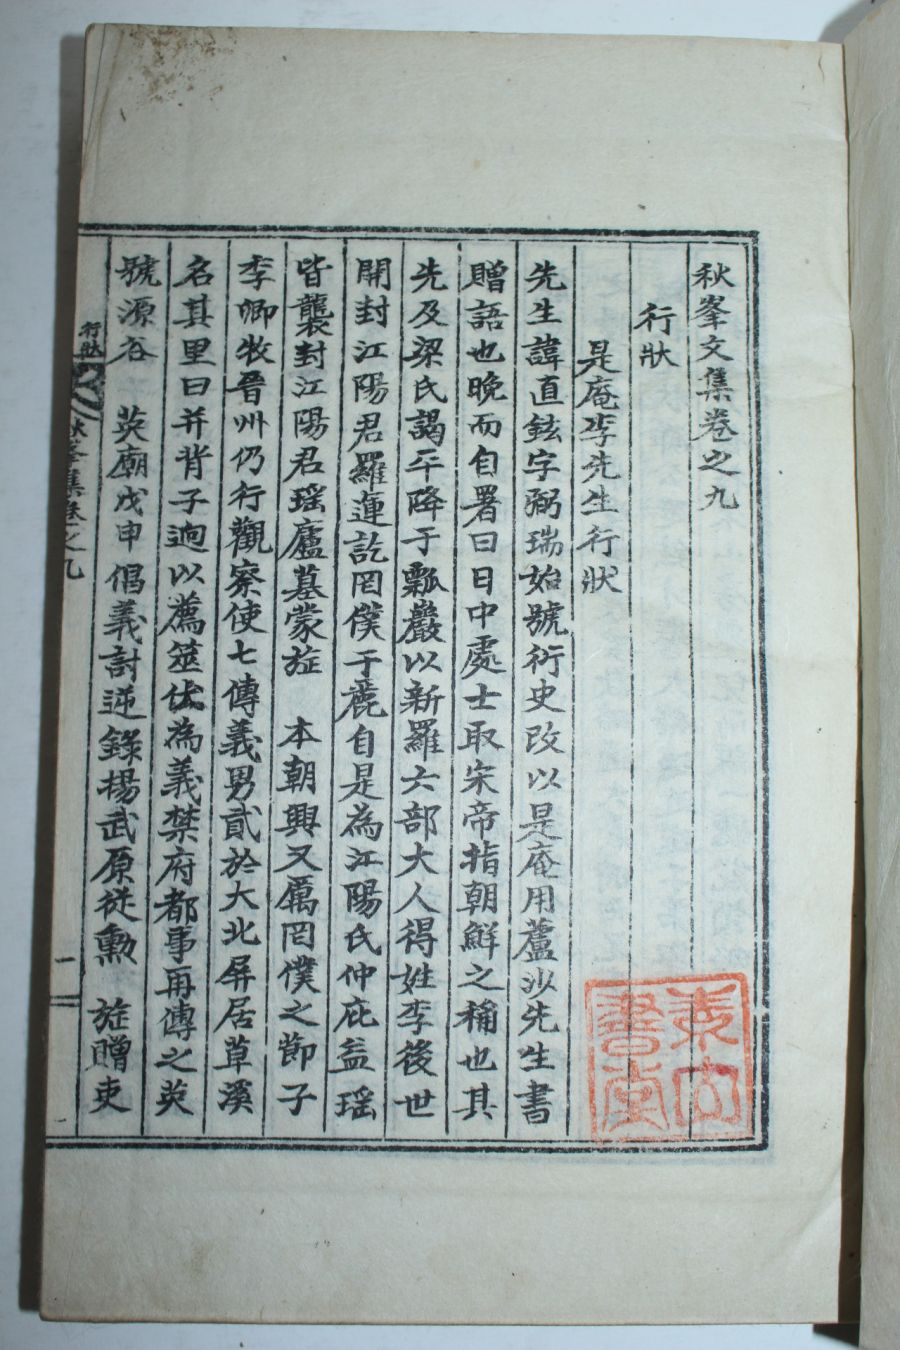 秋峯文集卷之九
行狀
是庵李先生行狀
先生諱直鉉字弼瑞始號衍史改以是庵用蘆沙先生書
贈語也晩而自署曰日中處士取宋帝指朝鮮之稱也其
先及梁氏謁平降于瓢巖以新羅六部大人得姓李後世
開封江陽君羅運訖罔僕于麗自是為江陽氏仲庇益瑶
皆襲封江陽君瑶廬墓蒙㫌 本朝興又厲罔僕之節子
李卿牧晋州仍行觀察使七傳義男貳於大北屛居草溪
名其里曰并背子逈以薦筮仕為義禁府都事再傳之英
號源谷 英廟戊申倡義討逆錄揚武原從勲 㫌贈吏
行狀
秋峯集卷之九
一